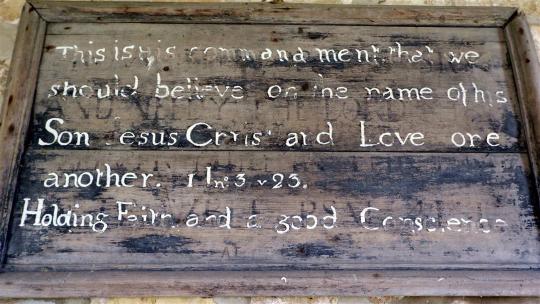 This is his commandment that we
should believe on the name of his
Son Jesus Christ and Love one
another. 1 Jno 3 v 23.
Holding Faith and a good Conscience